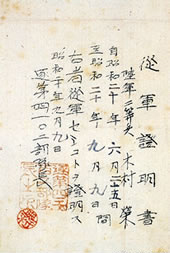 従軍證明書
陸軍二等兵 木村 榮
自昭和二十年 六月二十五日
至昭和二十年 九月九日 間
右者従軍セシコトヲ證明ス
昭和二十年九月九日
第四一〇二部隊長